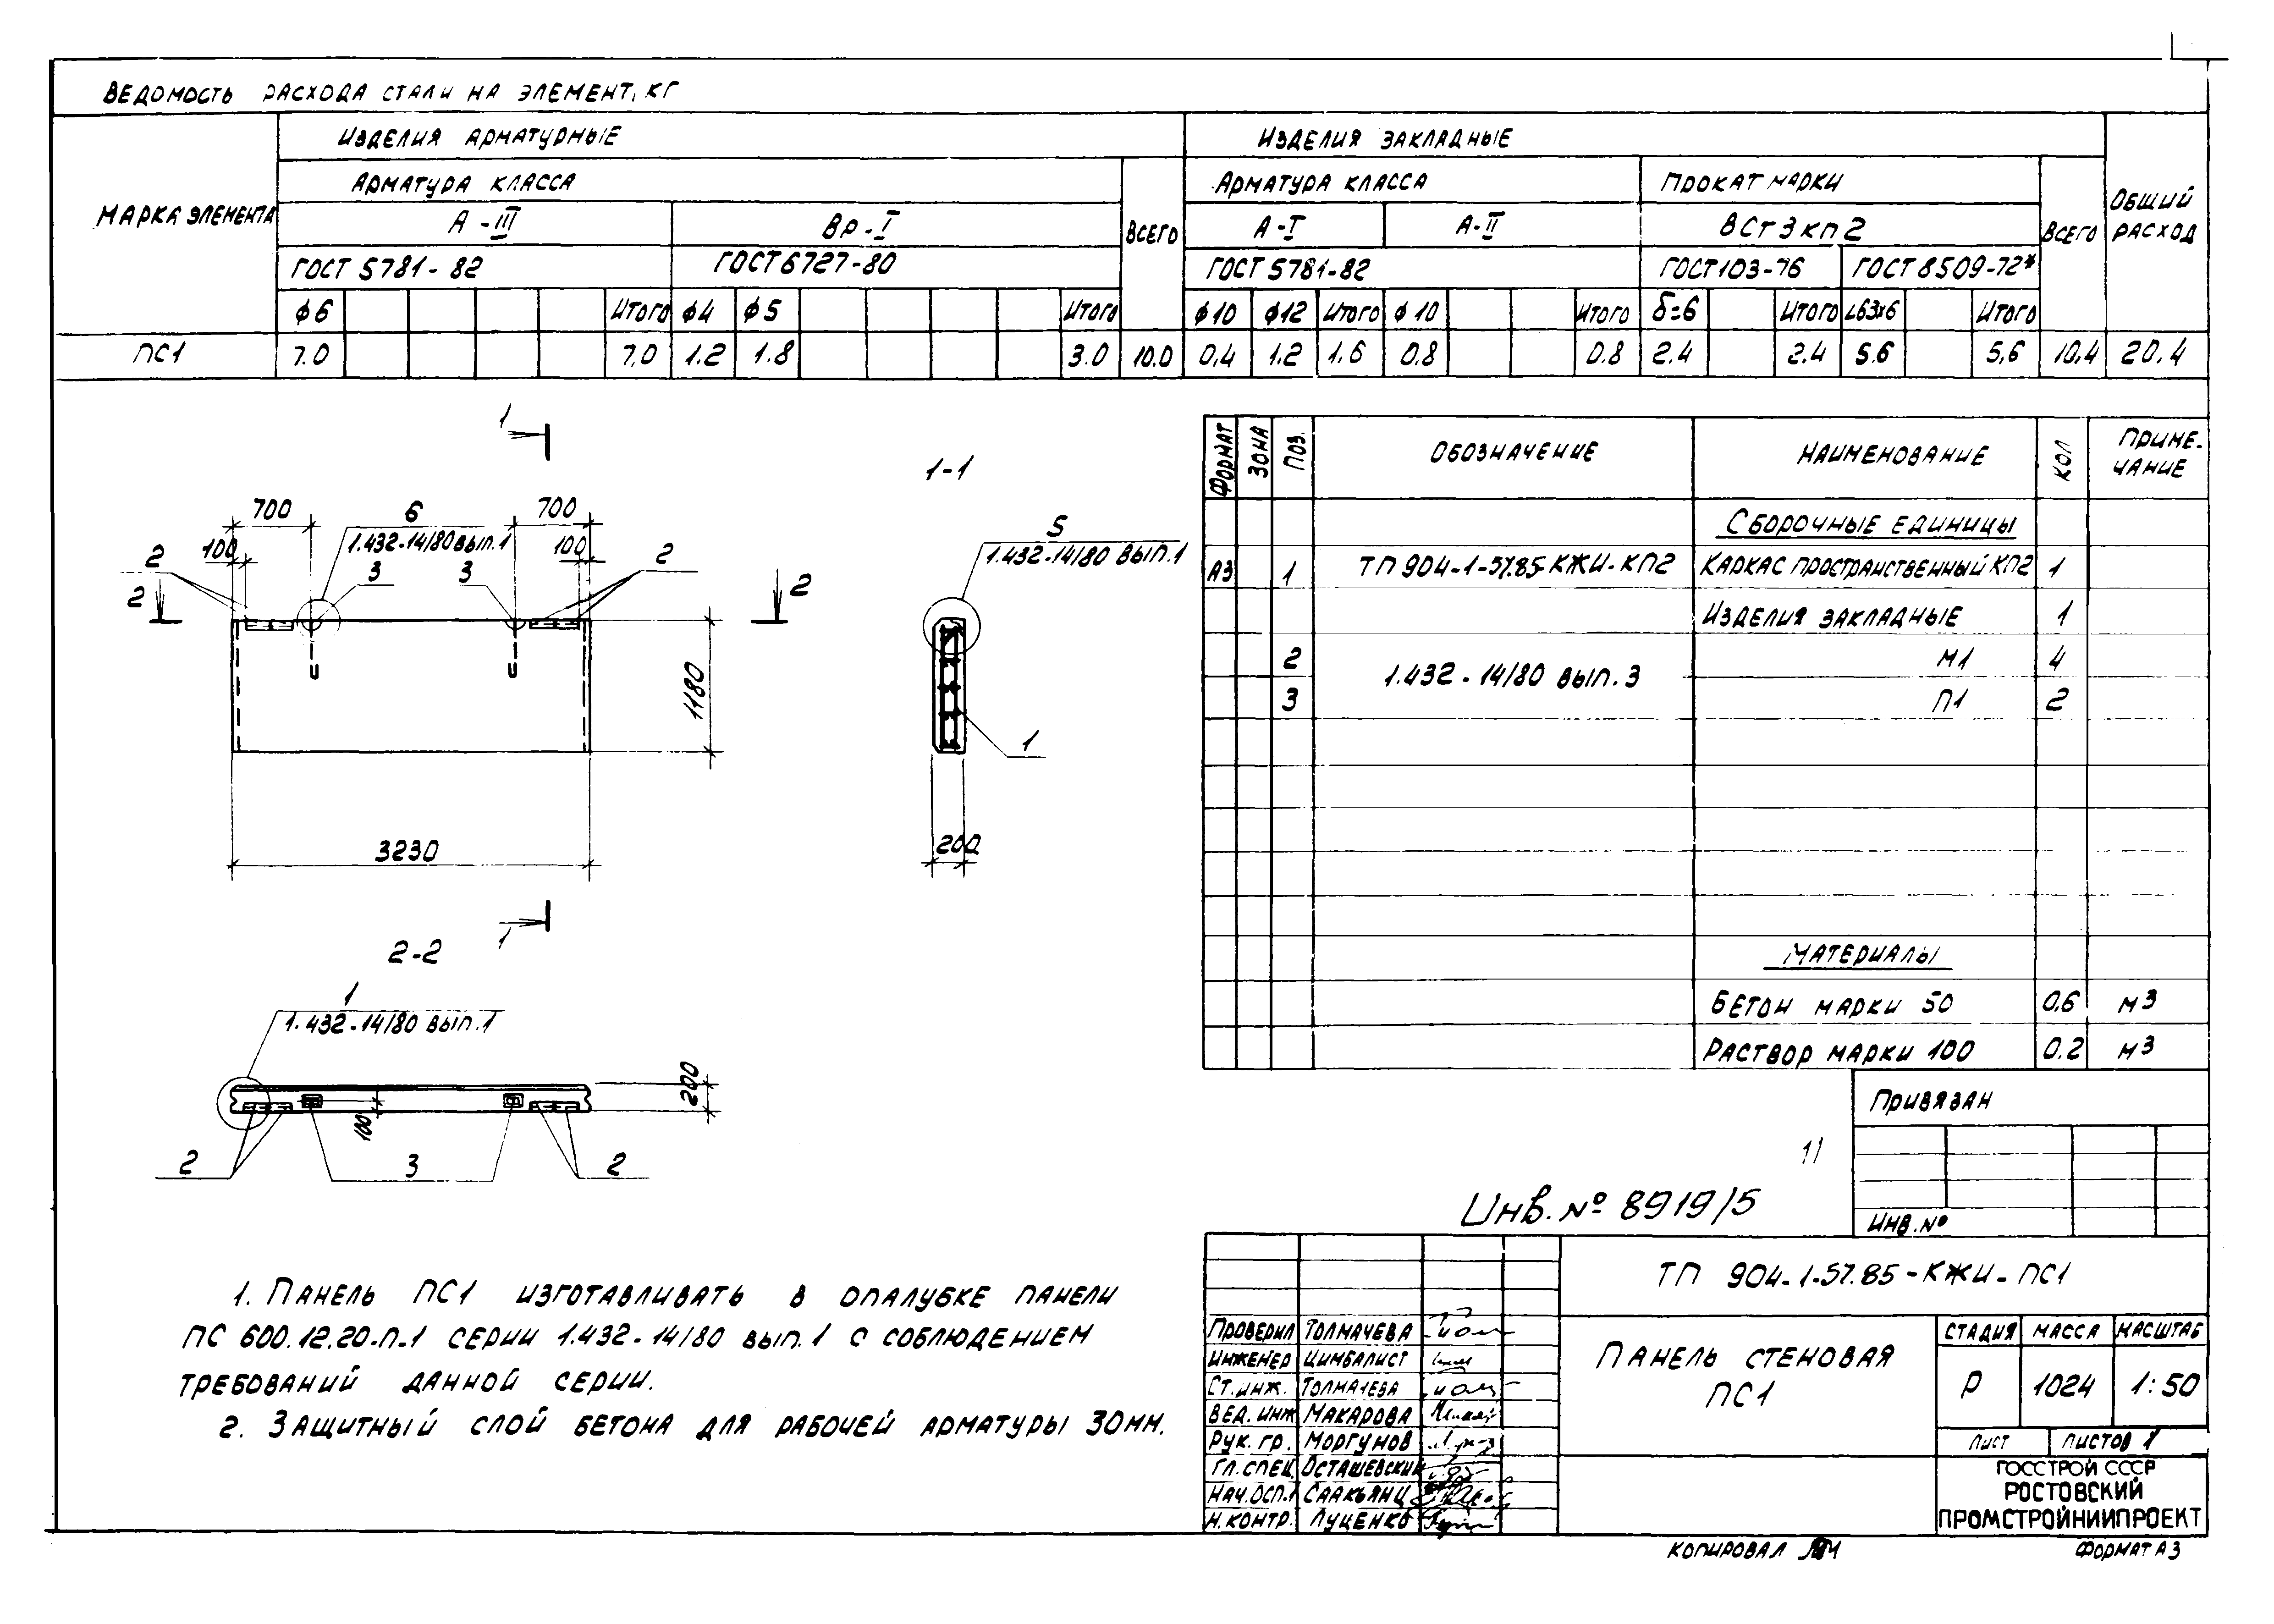 ВЕДОМОСТЬ РАСХОДА СТАЛИ НА ЭЛЕМЕНТ, КГ
МАРКА ЭЛЕМЕНТА
ИЗДЕЛИЯ АРМАТУРНЫЕ
ИЗДЕЛИЯ ЗАКЛАДНЫЕ
ОБЩИЙ РАСХОД
АРМАТУРА КЛАССА
ВСЕГО
АРМАТУРА КЛАССА
ПРОКАТ МАРКИ
ВСЕГО
А-III
ВР-I
А-I
А-II
ВСТ3КП2
ГОСТ 5781-82
ГОСТ 6727-80
ГОСТ 5781-82
ГОСТ 103-76
ГОСТ 8509-72*
ф6 ИТОГО ф4 ф5 ИТОГО ф10 ф12 ИТОГО ф10 ИТОГО δ=6 ИТОГО L63х6 ИТОГО
ПС1 7.0 7,0 1.2 1.8 3.0 10.0 0,4 1.2 1,6 0,8 0.8 2.4 2.4 5.6 5,6 10,4 20.4
1
1-1
700
6
700
1.432-14/80 ВЫП.1
100
100
2
3
3
2
2
2
1180
3230
1
5
1.432-14/80 ВЫП.1
1
200
2-2
1
1.432-14/80 ВЫП.1
200
100
2
3
2
ФОРМАТ ЗОНА ПОЗ. ОБОЗНАЧЕНИЕ НАИМЕНОВАНИЕ КОЛ ПРИМЕ-
ЧАНИЕ
СБОРОЧНЫЕ ЕДИНИЦЫ
А3 1 ТП 904-1-57.85-КЖИ-КП2 КАРКАС ПРОСТРАНСТВЕННЫЙ КП2 1
ИЗДЕЛИЯ ЗАКЛАДНЫЕ 1
2 М1 4
1.432-14/80 ВЫП.3
3 П1 2
МАТЕРИАЛЫ
БЕТОН МАРКИ 50 0.6 М3
РАСТВОР МАРКИ 100 0.2 М3
ПРИВЯЗАН
ИНВ.№
11
Инв.№ 8919/5
1. ПАНЕЛЬ ПС1 ИЗГОТАВЛИВАТЬ В ОПАЛУБКЕ ПАНЕЛИ
ПС 600.12.20-П-1 СЕРИИ 1.432-14/80 ВЫП.1 С СОБЛЮДЕНИЕМ
ТРЕБОВАНИЙ ДАННОЙ СЕРИИ.
2. ЗАЩИТНЫЙ СЛОЙ БЕТОНА ДЛЯ РАБОЧЕЙ АРМАТУРЫ 30ММ.
ТП 904-1-57.85-КЖИ-ПС1
ПРОВЕРИЛ ТОЛМАЧЕВА
ИНЖЕНЕР ЦИМБАЛИСТ
СТ.ИНЖ. ТОЛМАЧЕВА
ВЕД. ИНЖ МАКАРОВА
РУК. ГР. МОРГУНОВ
ГЛ.СПЕЦ. ОСТАШЕВСКИЙ
НАЧ.ОСП.1 СААКЬЯНЦ
Н.КОНТР. ЛУЦЕНКО
ПАНЕЛЬ СТЕНОВАЯ
ПС1
СТАДИЯ МАССА МАСШТАБ
Р 1024 1:50
ЛИСТ ЛИСТОВ 1
ГОССТРОЙ СССР
РОСТОВСКИЙ
ПРОМСТРОЙНИИПРОЕКТ
КОПИРОВАЛ
ФОРМАТ А3